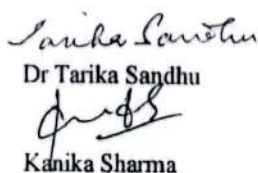 Tarika Sandhu
Dr Tarika Sandhu
Kanika Sharma